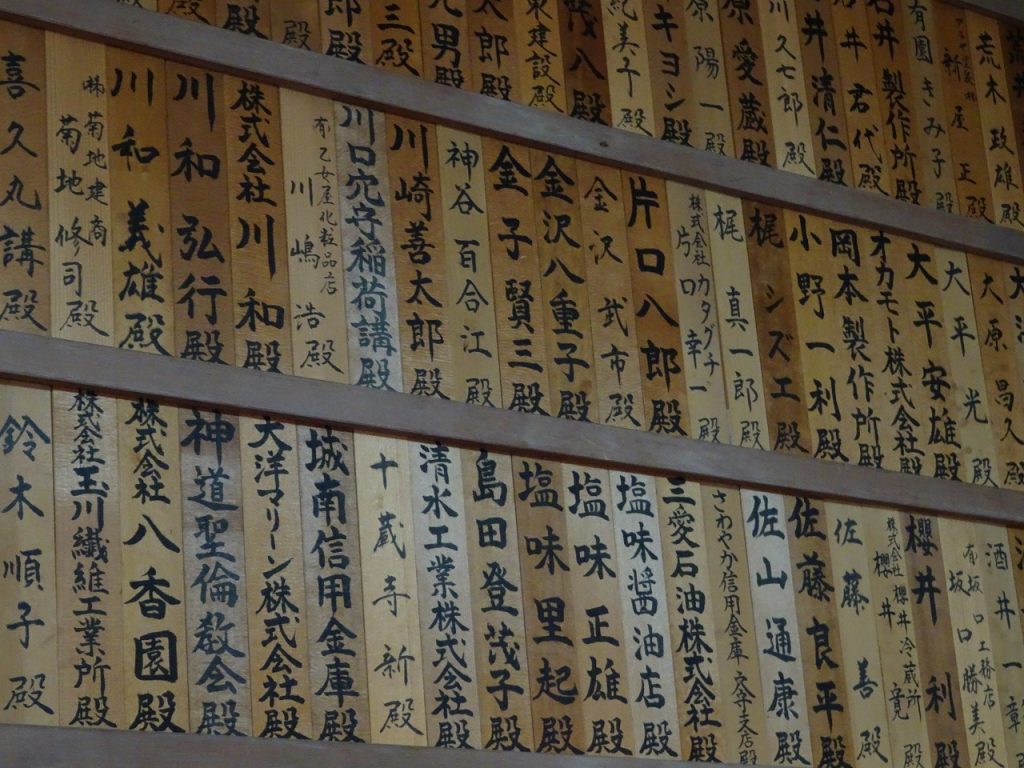 荒木政雄殿
新屋 正殿
有園きみ子殿
石井製作所殿
石井君代殿
井清仁殿
川久七郎殿
原愛蔵殿
原陽一殿
キヨシ殿
紀美子殿
八殿
東建設殿
太郎殿
男殿
三殿
郎殿
殿
殿
大原昌久殿
大平 光殿
大平安雄殿
オカモト株式会社殿
岡本製作所殿
小野一利殿
梶シズエ殿
梶真一郎殿
株式会社カタグチ
片口幸一殿
片口八郎殿
金沢武市殿
金沢八重子殿
金子賢三殿
神谷百合江殿
川崎善太郎殿
川口穴守稲荷講殿
有 乙女屋化粧品店
川嶋 浩殿
株式会社川和殿
川和弘行殿
川和義雄殿
株 菊地建商
菊地修司殿
喜久丸講殿
酒井一章
有 坂口工務店
坂口勝美殿
櫻井 利殿
株式会社 櫻井冷蔵所
櫻井 竟殿
佐藤 善殿
佐藤良平殿
佐山通康殿
さわやか信用金庫 穴守支店殿
三愛石油株式会社殿
塩味醤油店殿
塩味正雄殿
塩味里起殿
島田登茂子殿
清水工業株式会社殿
十蔵寺新殿
城南信用金庫殿
大洋マリーン株式会社殿
神道聖倫教会殿
株式会社八香園殿
株式会社玉川繊維工業所殿
鈴木順子殿